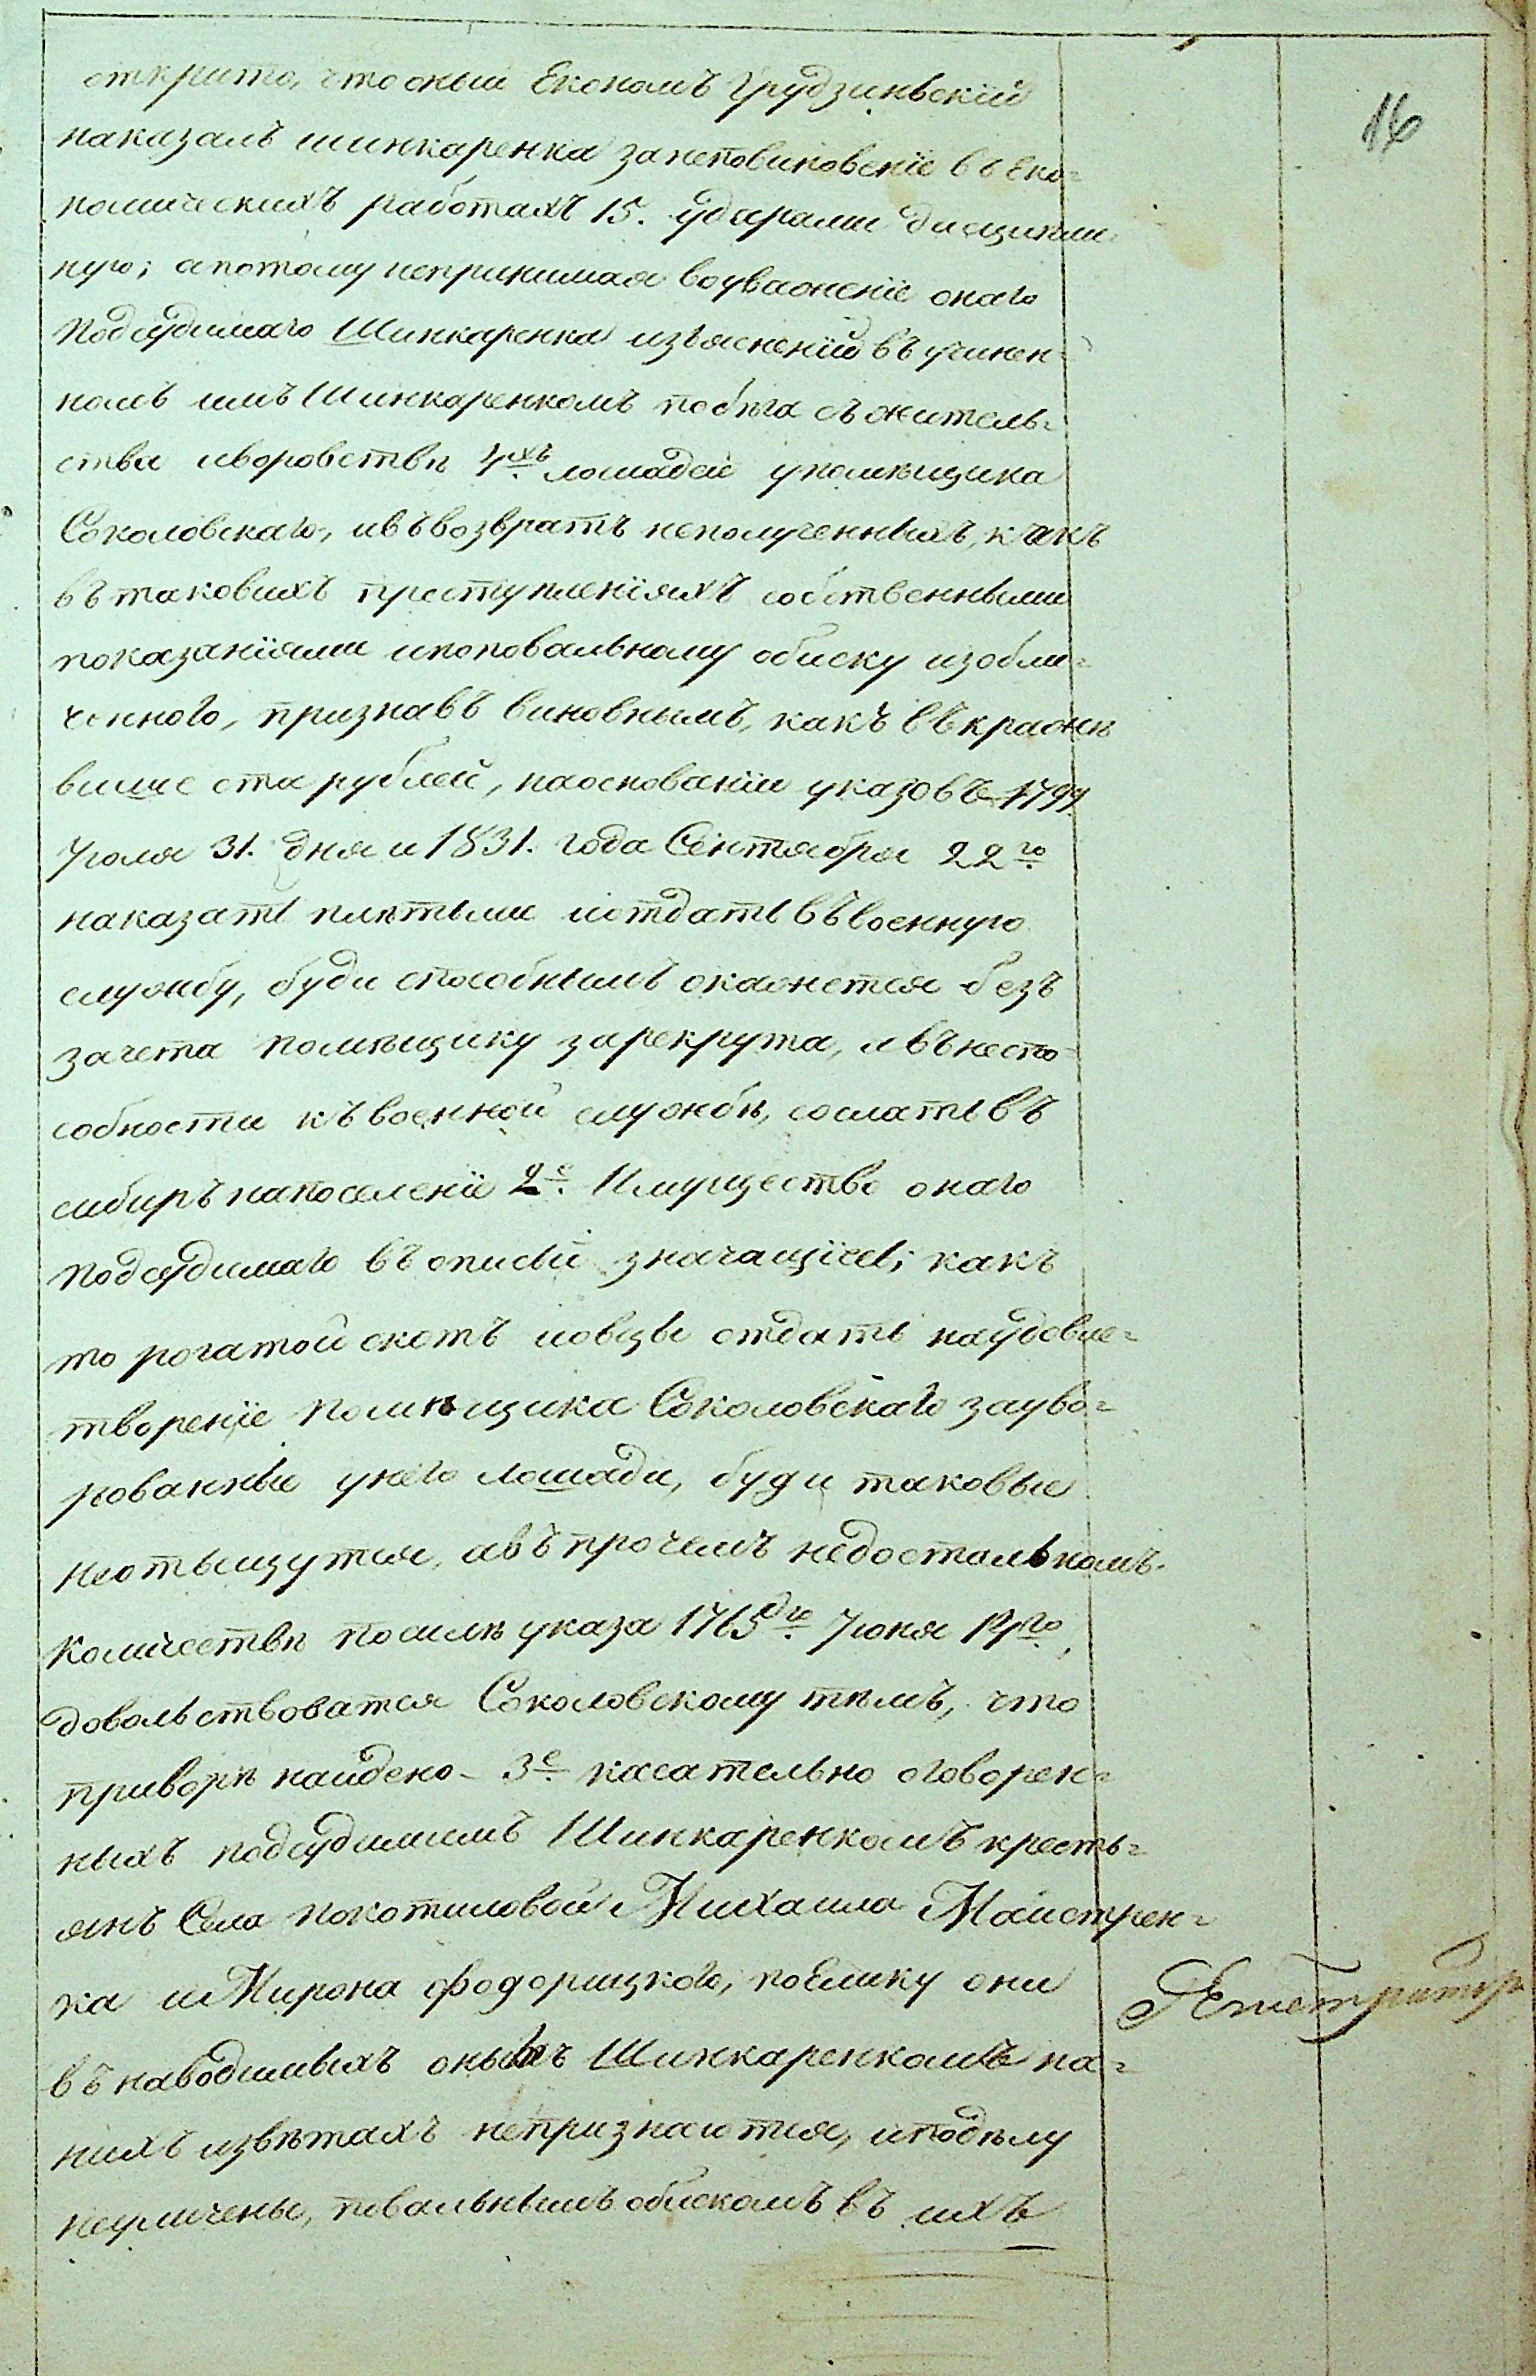 16
открито, что оный Економъ Грудзиньскїй
наказалъ шинкаренка занеповиновенїе въ Еко-
номическихъ работахъ 15. ударами дисципли-
ною; апотому непринимая воуваженїе онаго
Подсудимаго Шинкаренка изъясненїй въ учинен-
номъ имъ Шинкаренкомъ побѣга съ житель-
ства иворовствѣ 4хъ лошадей упомѣщика
Соколовскаго, ивъвозвратъ неполученныхъ, какъ
въ таковихъ преступленїяхъ собственными
показанїями ипоповальному обиску изобли-
ченного, признавъ виновнымъ, какъ въ кражѣ
више ста рублей, наоснованїи указовъ 1799
Уюля 31. дня и 1831. года Сентября 22го
наказать плѣтьми иотдать въвоенную
службу, буди способнымъ окажется безъ
зачета помѣщику зарекрута, авънеспо-
собности къвоенной службѣ, сослать въ
сибиръ напоселенїе 2е. Имущество онаго
подсудимаго въ описьи значащїесь; какъ
то рогатой скотъ иовцы отдать наудовле-
творенїе помѣщика Соколовскаго зауво-
рованные унего лошади, буди таковые
неотыщутся, авъ прочемъ недостальномъ
количествѣ посилѣ указа 1765го Уюня 14го,
довольствоватся Соколовскому тѣмъ, что
приворѣ найдено – 3е касательно оговорен-
ныхъ подсудимимъ Шинкаренкомъ кресть-
янъ Села покотиловой Михаила Майстрен-
ка иМирона Фодорицкого, поелику они
въ наводимыхъ онымъ Шинкаренкомъ на-
нихъ извѣтахъ непризнаются, иподѣлу
неуличены, повальнымъ обискомъ въ ихъ
Регистраторъ